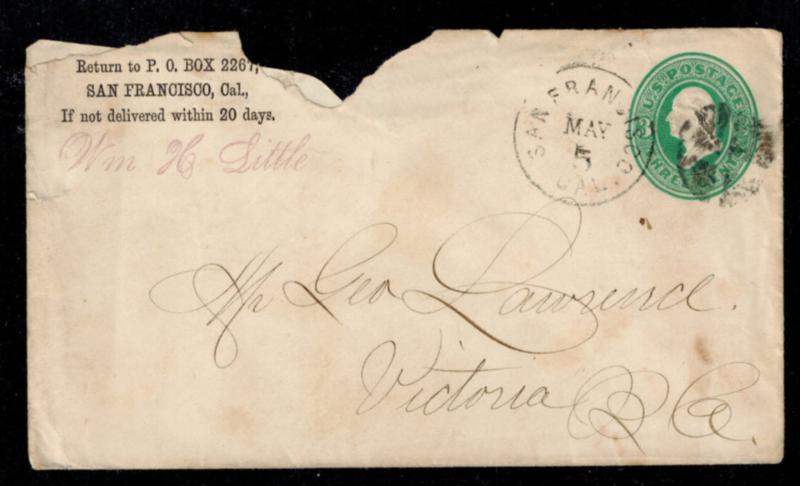 Return to P. O. BOX 2267,
SAN FRANCISCO, Cal.,
If not delivered within 20 days.
Wm H Little
SAN FRANCISCO
MAY
5
CAL.
U.S. POSTAGE
3
THREE CENTS
Mr Geo Lawrence.
Victoria B C.